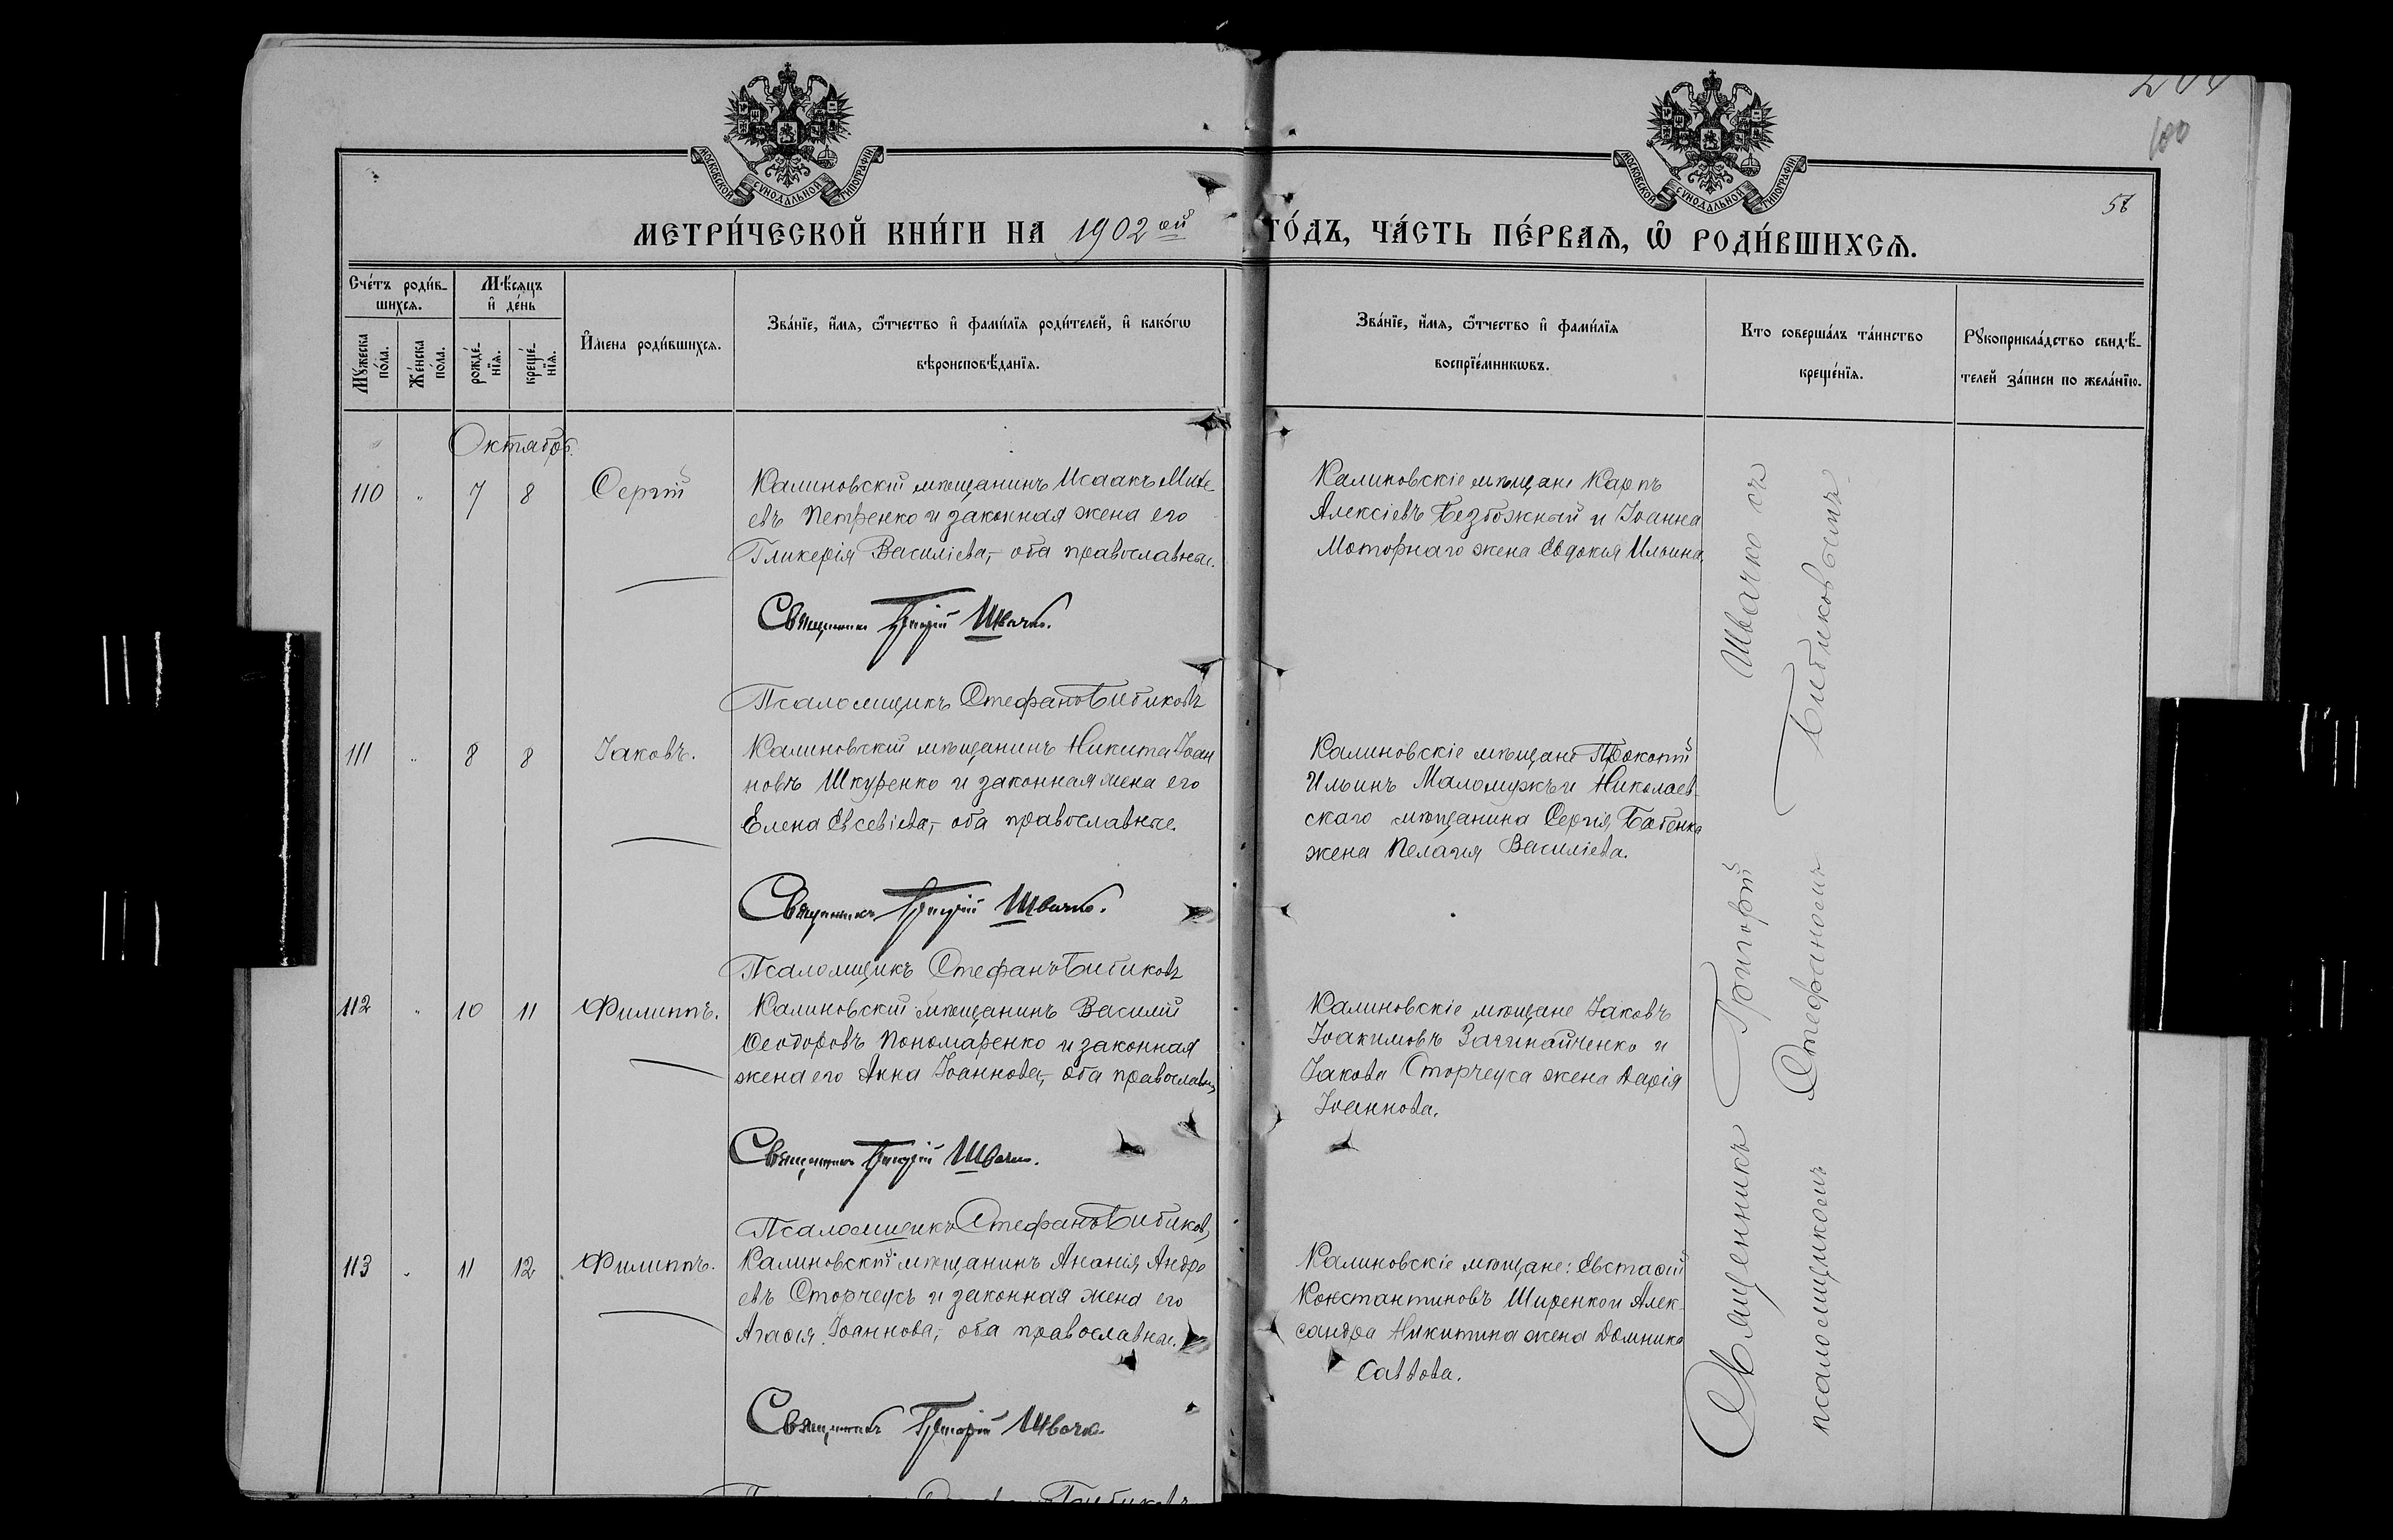 100
58
МОСКОВСКОЙ СУНОДАЛЬНОЙ ТИПОГРАФІИ
МОСКОВСКОЙ СУНОДАЛЬНОЙ ТИПОГРАФІИ
МЕТРИ́ЧЕСКОЙ КНИ́ГИ НА 1902 ой ГО́ДЪ, ЧА́СТЬ ПЕ́РВАѦ, Ѽ РОДИ́ВШИХСѦ.
Сче́тъ роди́в-
шихсѧ.
Мꙋжеска
по́ла.
Же́нска
по́ла.
Мѣ́сѧцъ
и҆ де́нь
рожде́-
нїѧ.
креще́-
нїѧ.
И҆мена роди́вшихсѧ.
Зва́нїе, и҆́мѧ, ѻ҆́тчество и҆ фами́лїѧ роди́телей, и҆ како́гѡ
вѣроисповѣ́данїѧ.
Зва́нїе, и҆́мѧ, ѻ҆́тчество и҆ фами́лїѧ
воспрїе́мникѡвъ.
Кто соверша́лъ та́инство
креще́нїѧ.
Рꙋкоприкла́дство свидѣ́-
телей за́писи по жела́нїю.
Октябрь.
110 " 7 8 Сергій
Калиновскій мѣщанинъ Исаакъ Михе
евъ Петренко и законная жена его
Гликерія Василіева,- оба православные.
Священникъ Григорій Швачко.
Псаломщикъ Стефанъ Бибиковъ
Калиновскіе мѣщане Карпъ
Алексіевъ Безбожный и Іоанна
Моторнаго жена Евдокія Ильина.
111 " 8 8 Іаковъ.
Калиновскій мѣщанинъ Никита Іоан
новъ Шкуренко и законная жена его
Елена Евсевіева,- оба православные.
Священникъ Григорій Швачко.
Псаломщикъ Стефанъ Бибиковъ
Калиновскіе мѣщане Прокопій
Ильинъ Маломужъ и Николаев
скаго мѣщанина Сергія Бабенка
жена Пелагія Василіева.
112 " 10 11 Филиппъ.
Калиновскій мѣщанинъ Василій
Ѳеодоровъ Пономаренко и законная
жена его Анна Іоаннова,- оба православн,
Священникъ Григорій Швачко.
Псаломщикъ Стефанъ Бибиковъ
Калиновскіе мѣщане Іаковъ
Іоакимовъ Загинайченко и
Іакова Сторчеуса жена Дарія
Іоаннова.
113 " 11 12 Филиппъ.
Калиновскій мѣщанинъ Ананія Андре
евъ Сторчеусъ и законная жена его
Агаѳія Іоаннова,- оба православные.
Священникъ Григорій Швачко
Калиновскіе мѣщане: Евстаѳій
Константиновъ Ширенко и Алек-
сандра Никитина жена Домника
Саввова.
Священникъ Григорій Швачко съ
псаломщикомъ Стефаномъ Бибиковымъ